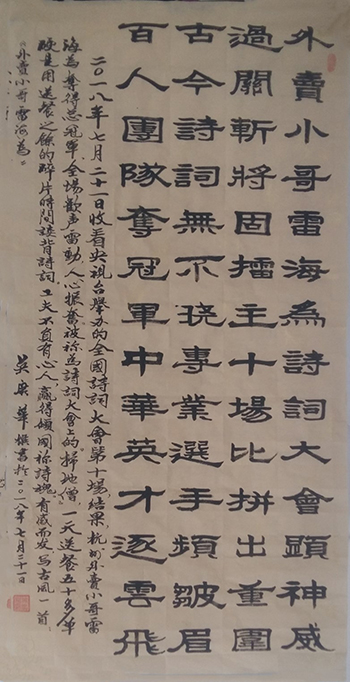 外賣小哥雷海為詩詞大會顕神威
過關斬將固擂主十場比拼出重圍
古今詩詞無不專業選手頻皺眉
百人團隊奪冠軍中華英才逐雲飛
二〇一八年七月二十一日收看央視台舉办的全國詩詞大會第十場結果,杭州外賣小哥雷
海为奪得总冠軍全場歡声雷動人心振奮被称為詩詞大會上的掃地僧,一天送餐五十多单
硬是用送餐之餘的碎片時間讀背詩詞工夫不負有心人贏得称詩魂有感而发写古風一首
《外賣小哥雷海為》。
吴華撰書於二〇一八年七月二十一日